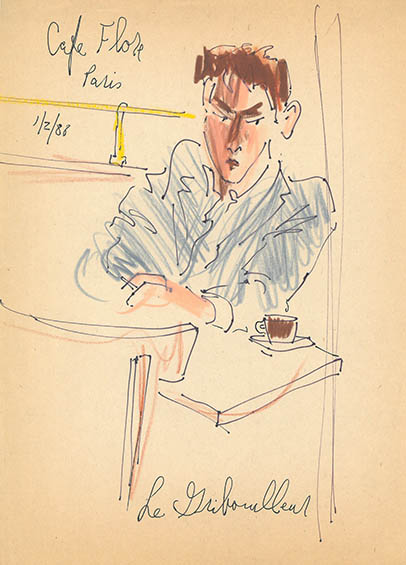 Cafe Flore
Paris
1/2/86
Le Gribouilleur